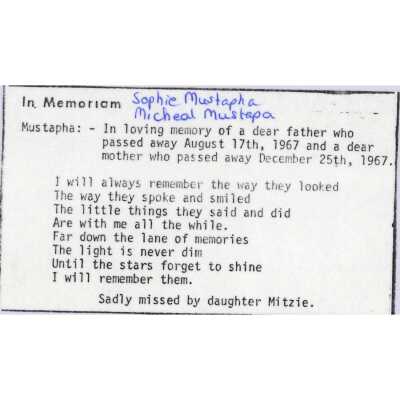 In Memoriam Sophie Mustapha
Micheal Mustapa
Mustapha: - In loving memory of a dear father who
passed away August 17th, 1967 and a dear
mother who passed away December 25th, 1967.
I will always remember the way they looked
The way they spoke and smiled
The little things they said and did
Are with me all the while.
Far down the lane of memories
The light is never dim
Until the stars forget to shine
I will remember them.
Sadly missed by daughter Mitzie.